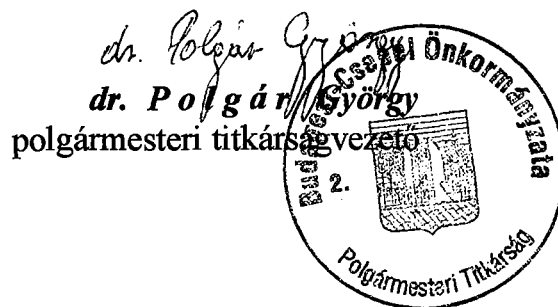 dr. Polgár György
dr. Polgár György
polgármesteri titkárságvezető
Budapest-Csepel Önkormányzata
2.
Polgármesteri Titkárság